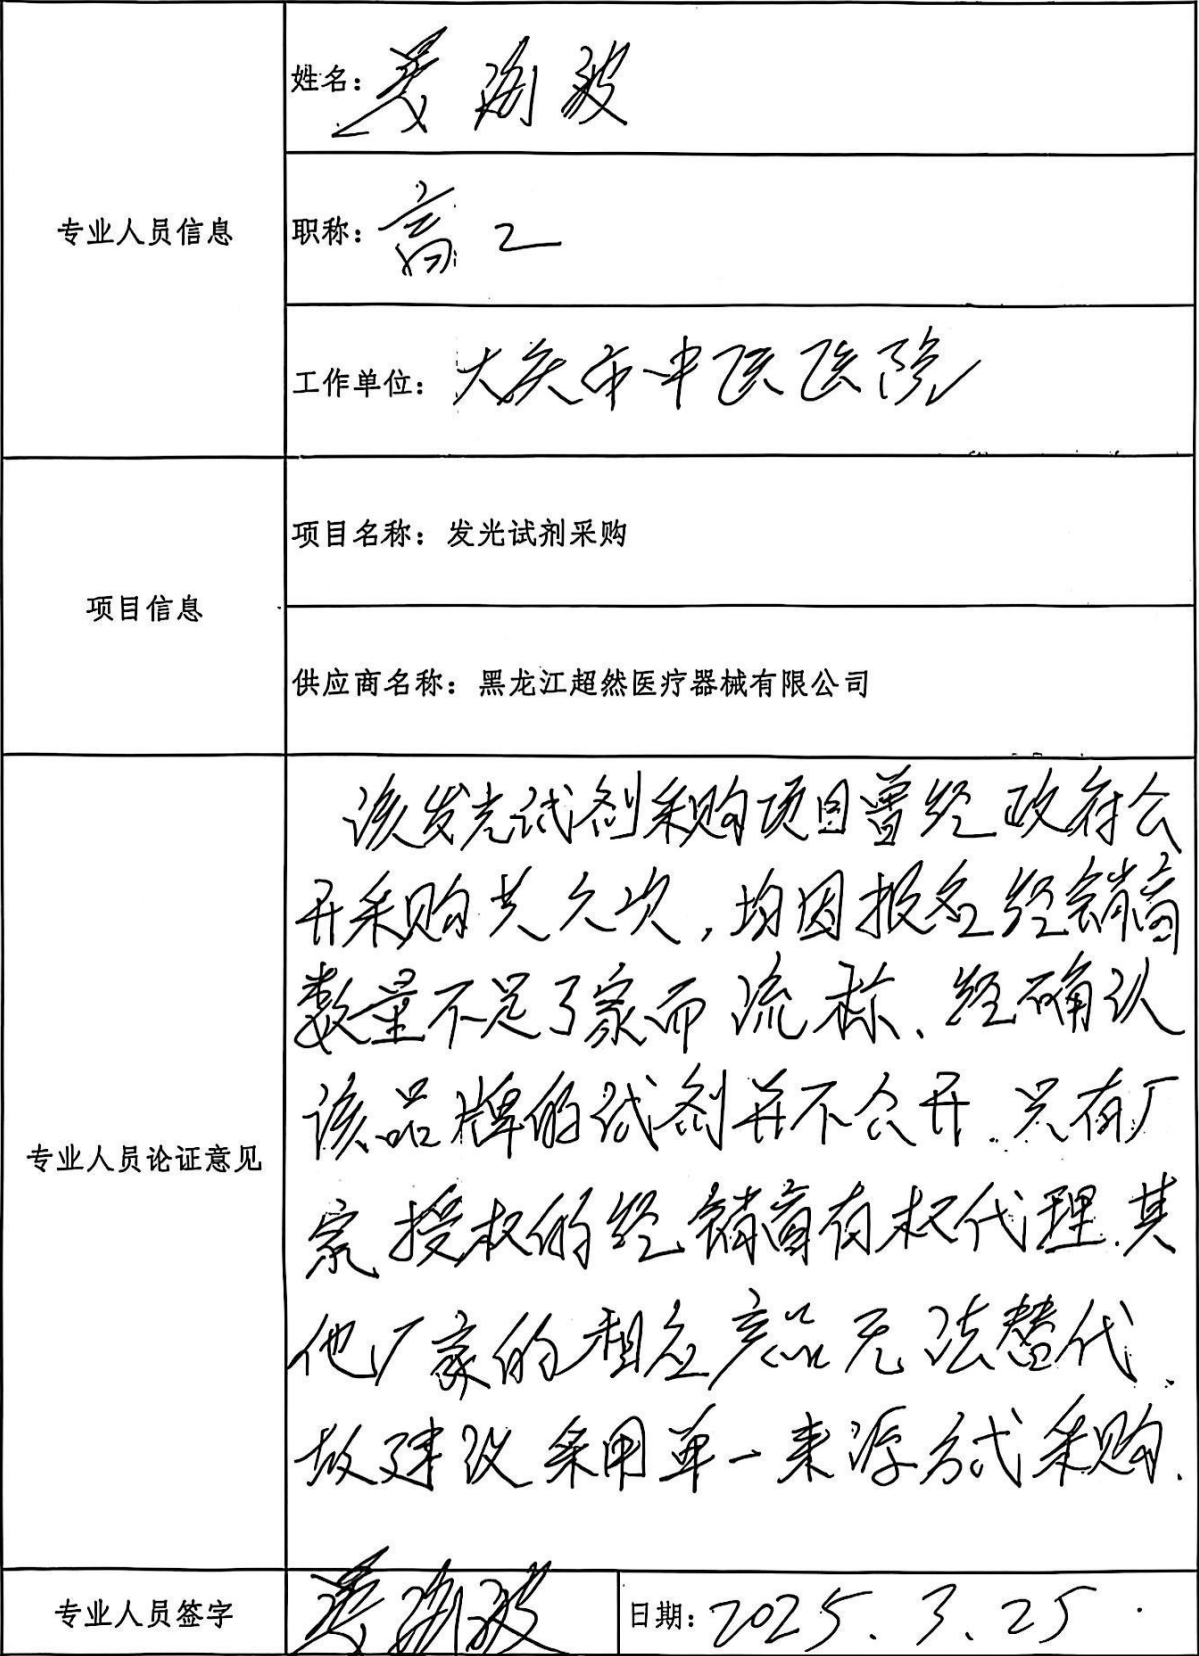 专业人员信息
姓名：姜海波
职称：高工
工作单位：大庆市中医医院
项目信息
项目名称：发光试剂采购
供应商名称：黑龙江超然医疗器械有限公司
专业人员论证意见
该发光试剂采购项目曾经政府公
开采购共六次，均因报名经销商
数量不足3家而流标、经确认
该品牌的试剂并不公开.只有厂
家授权的经销商有权代理.其
他厂家的相应产品无法替代.
故建议采用单一来源方式采购.
专业人员签字
姜海波
日期：2025.3.25.